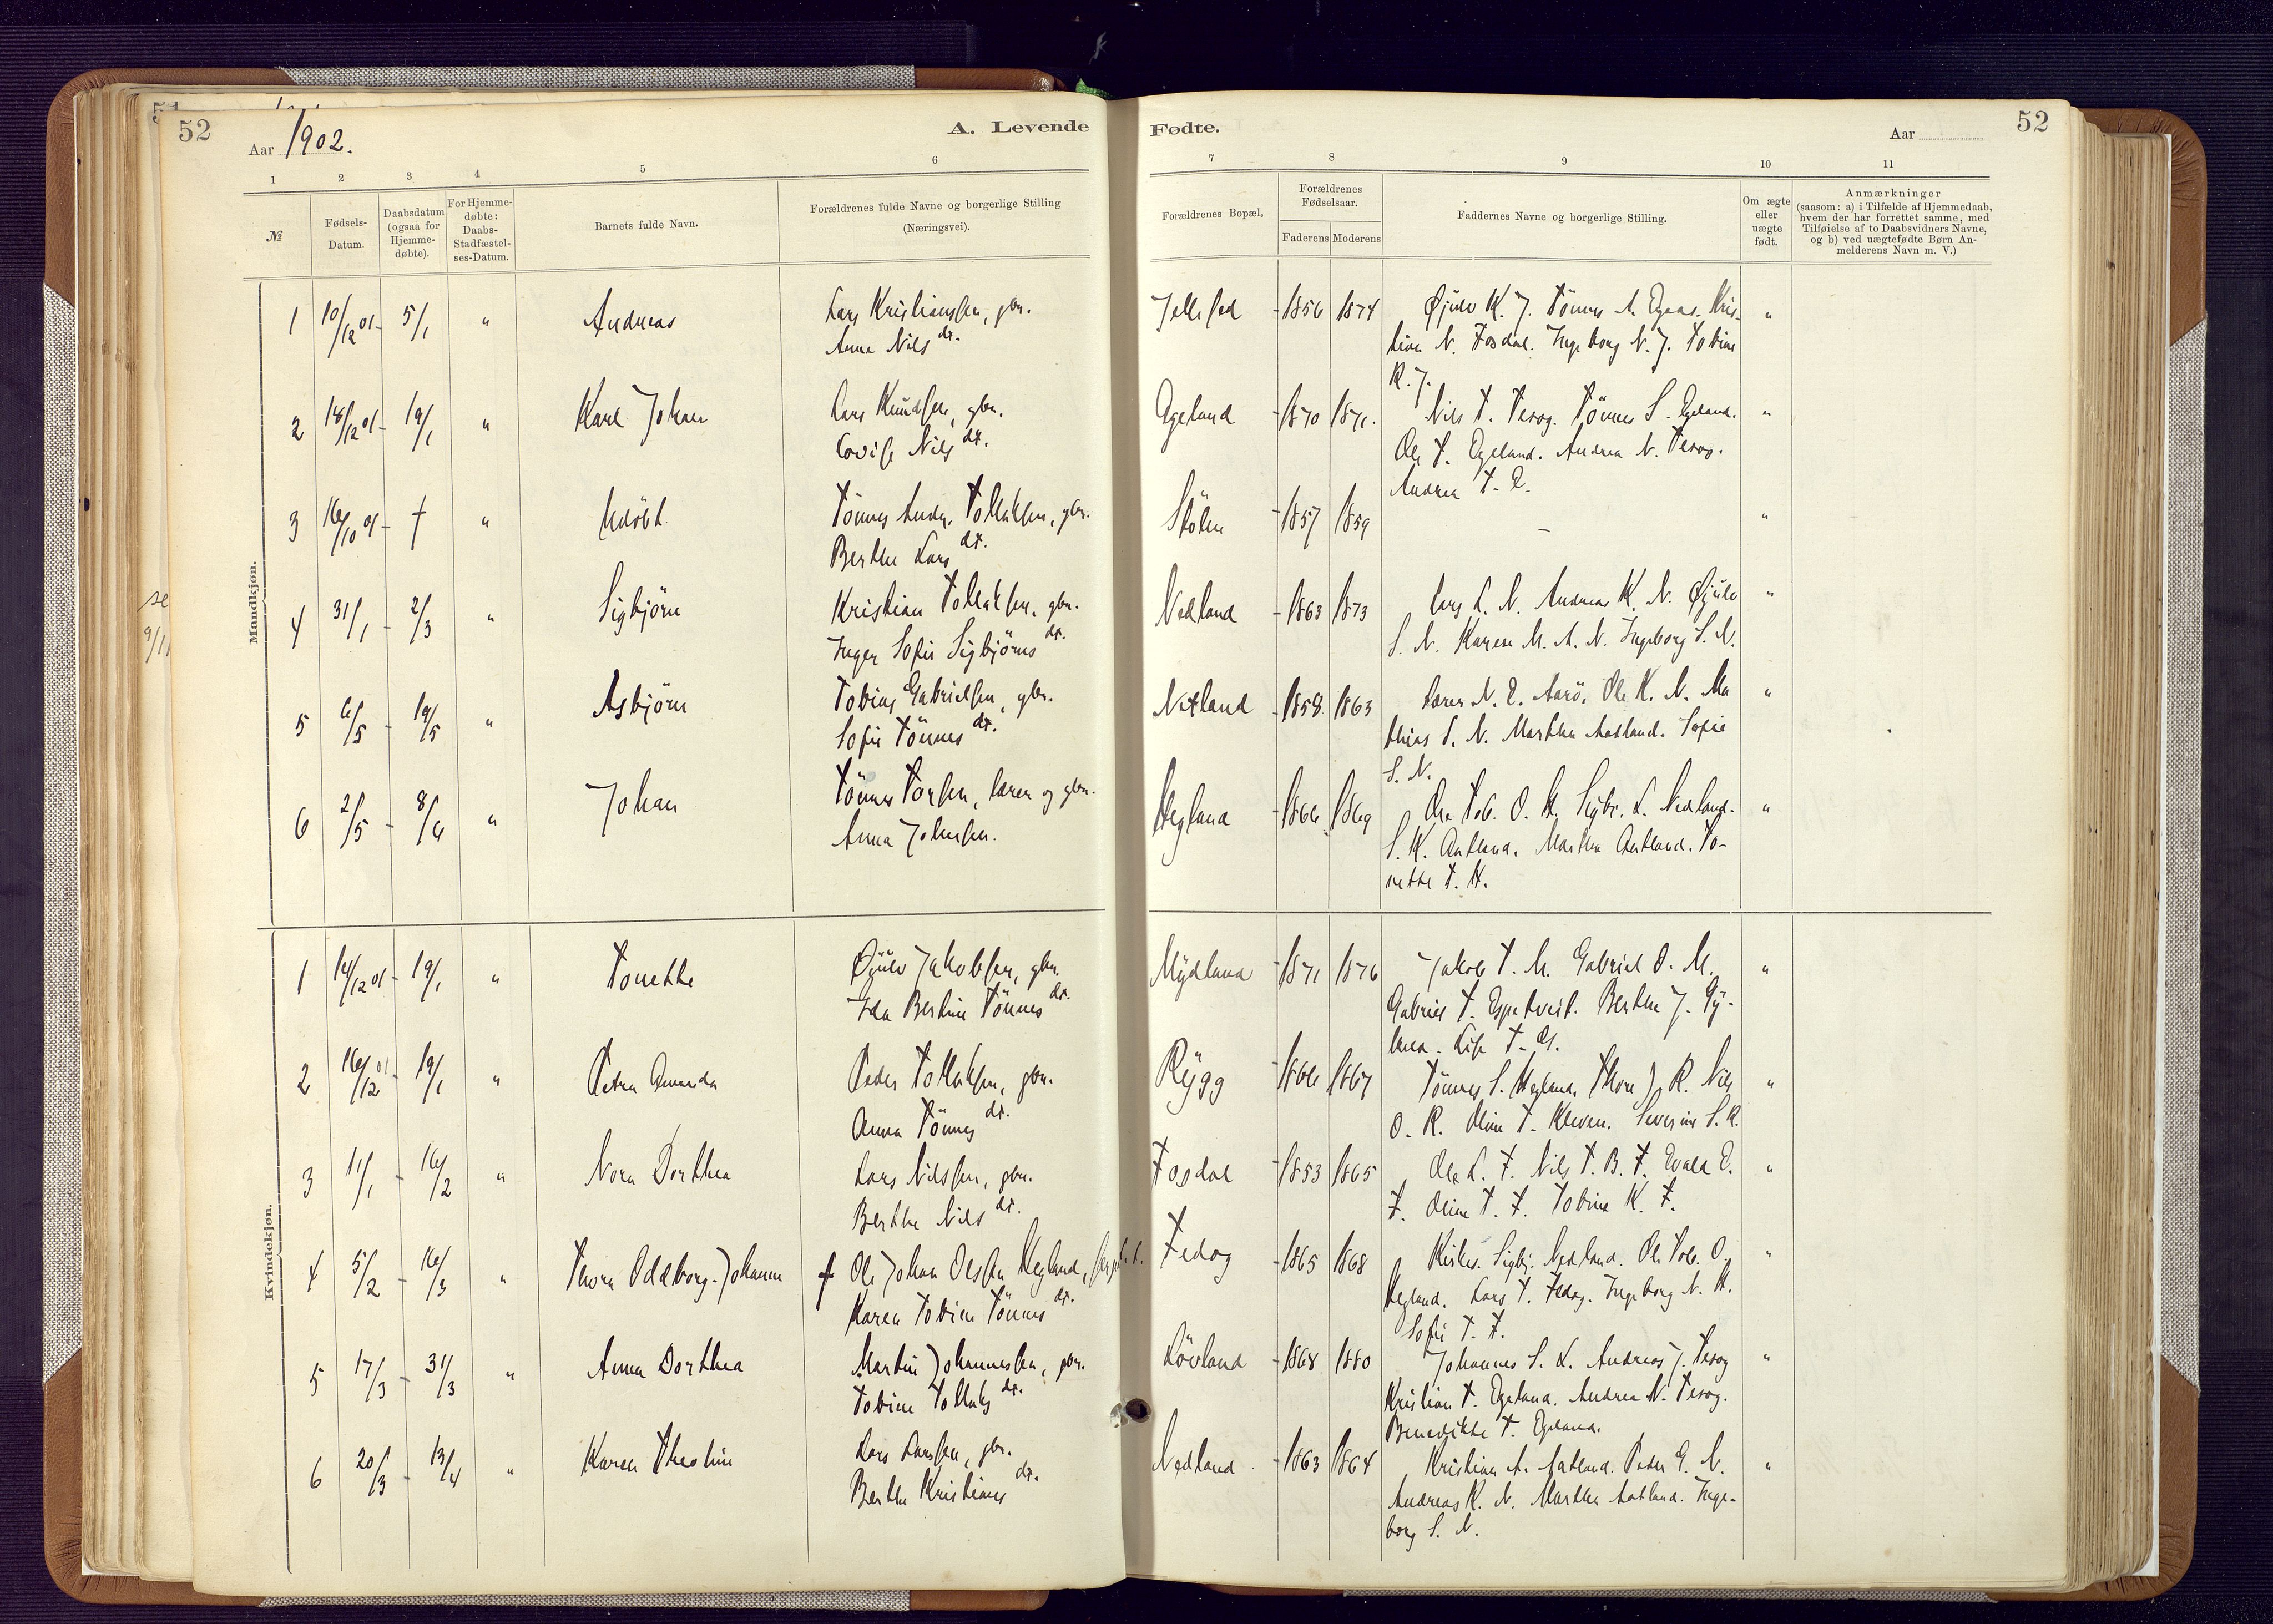 52
Aar 1902.
A. Levende Fødte.
Aar
52
1 2 3 4 5 6 7 8 9 10 11
№
Fødsels-Datum.
Daabsdatum (ogsaa for Hjemme-døbte).
For Hjemme-døbte: Daabs-Stadfæstel-ses-Datum.
Barnets fulde Navn.
Forældrenes fulde Navne og borgerlige Stilling
(Næringsvei).
Forældrenes Bopæl.
Forældrenes Fødselsaar.
Faderens Moderens
Faddernes Navne og borgerlige Stilling.
Om ægte eller uægte født.
Anmærkninger
(saasom: a) i Tilfælde af Hjemmedaab,
hvem der har forrettet samme, med
Tilføielse af to Daabsvidners Navne,
og b) ved uægtefødte Børn An-
melderens Navn m. V.)
Mandkjøn.
1 10/12 01 - 5/1 " Andreas Lars Kristianssen, gbr. - 1856 1874 Øjulv K. J. Tönnes A. Egeas. Kris- "
Anna Nils dr. tian N. Fosdal. Ingeborg N. J. Tobine
K. J.
2 18/12 01 - 19/1 " Karl Johan Lars Knudsen, gbr. Egeland - 1870 1871. Nils T. Tesog. Tönnes S. Egeland. "
Lovise Nils dr. Ole T. Egeland. Andrea N. Tesog.
Andrea T. E.
3 16/10 01 - † " Udöbt. Tönnes Andr. Tollaksen, gbr. Stölen - 1857 1859 - "
Berthe Lars dr.
4 31/1 - 2/3 " Sigbjörn Kristian Tollaksen, gbr. Nedland - 1863 1873 Lars L. N. Andreas K. N. Øjulv "
Inger Sofie Sigbjörns dr. S. N. Karen M. A. N. Ingeborg S. N.
5 6/5 - 19/5 " Asbjörn Tobias Gabrielsen, gbr. Netland - 1858 1863 Lærer N. E. Aarö. Ole K. N. Ma "
Sofie Tönnes dr. thias S. N. Marthe Aatland. Sofie
S. N.
6 2/5 - 8/6 " Johan Tönnes Torsen, lærer og gbr. Hegland 1866 1869 Ole Tob. O. H. Sigbr. L. Nedland. "
Anna Johnsen. S. K. Aatland. Marthe Aatland. To-
nette T. H.
Kvindekjøn.
1 14/12 01 - 19/1 " Tonette Øjulv Jakobsen, gbr. Mydland - 1871 1876 Jakob T. M. Gabriel O. M. "
Ida Bertine Tönnes dr. Gabriel T. Espetveit. Berthe J. Gy-
land. Lise T. G.
2 16/12 01 - 19/1 " Petra Amanda Peder Tollaksen, gbr. Rygg - 1866 1867 Tönnes S. Hegland. Thore J. R. Nils "
Anna Tönnes dr. O. R. Oline T. Kleven. Severine S. R.
3 11/1 - 16/2 " Nora Dorthea Lars Nilssen, gbr. Fosdal - 1853 1865 Ole L. F. Nils T. B. F. Evald E. "
Berthe Nils dr. F. Oline T. F. Tobine K. F.
4 5/2 - 16/3 " Thora Oddborg Johanne † Ole Johan Olssen Hegland, Fedog - 1865 1868 Sigbj. Nedland. Ole Tob. O. "
Karen Tobine Tönnes dr. Hegland. Lars T. Fedog. Ingeborg N. H.
Sofie T. F.
5 17/3 - 31/3 " Anna Dorthea Martin Johannessen, gbr. Lövland - 1868 1880 Johannes S. L. Andreas J. Tesog "
Tobine Tollaks dr. Kristian T. Egeland. Andrea N. Tesog.
Benedikte T. Egeland.
6 20/3 - 13/4 " Karen Theoline Lars Larssen, gbr. Nedland - 1863 1864 Kristian A. Aatland. Peder G. N. "
Berthe Kristians dr. Andreas K. N. Marthe Aatland. Inge-
borg S. N.